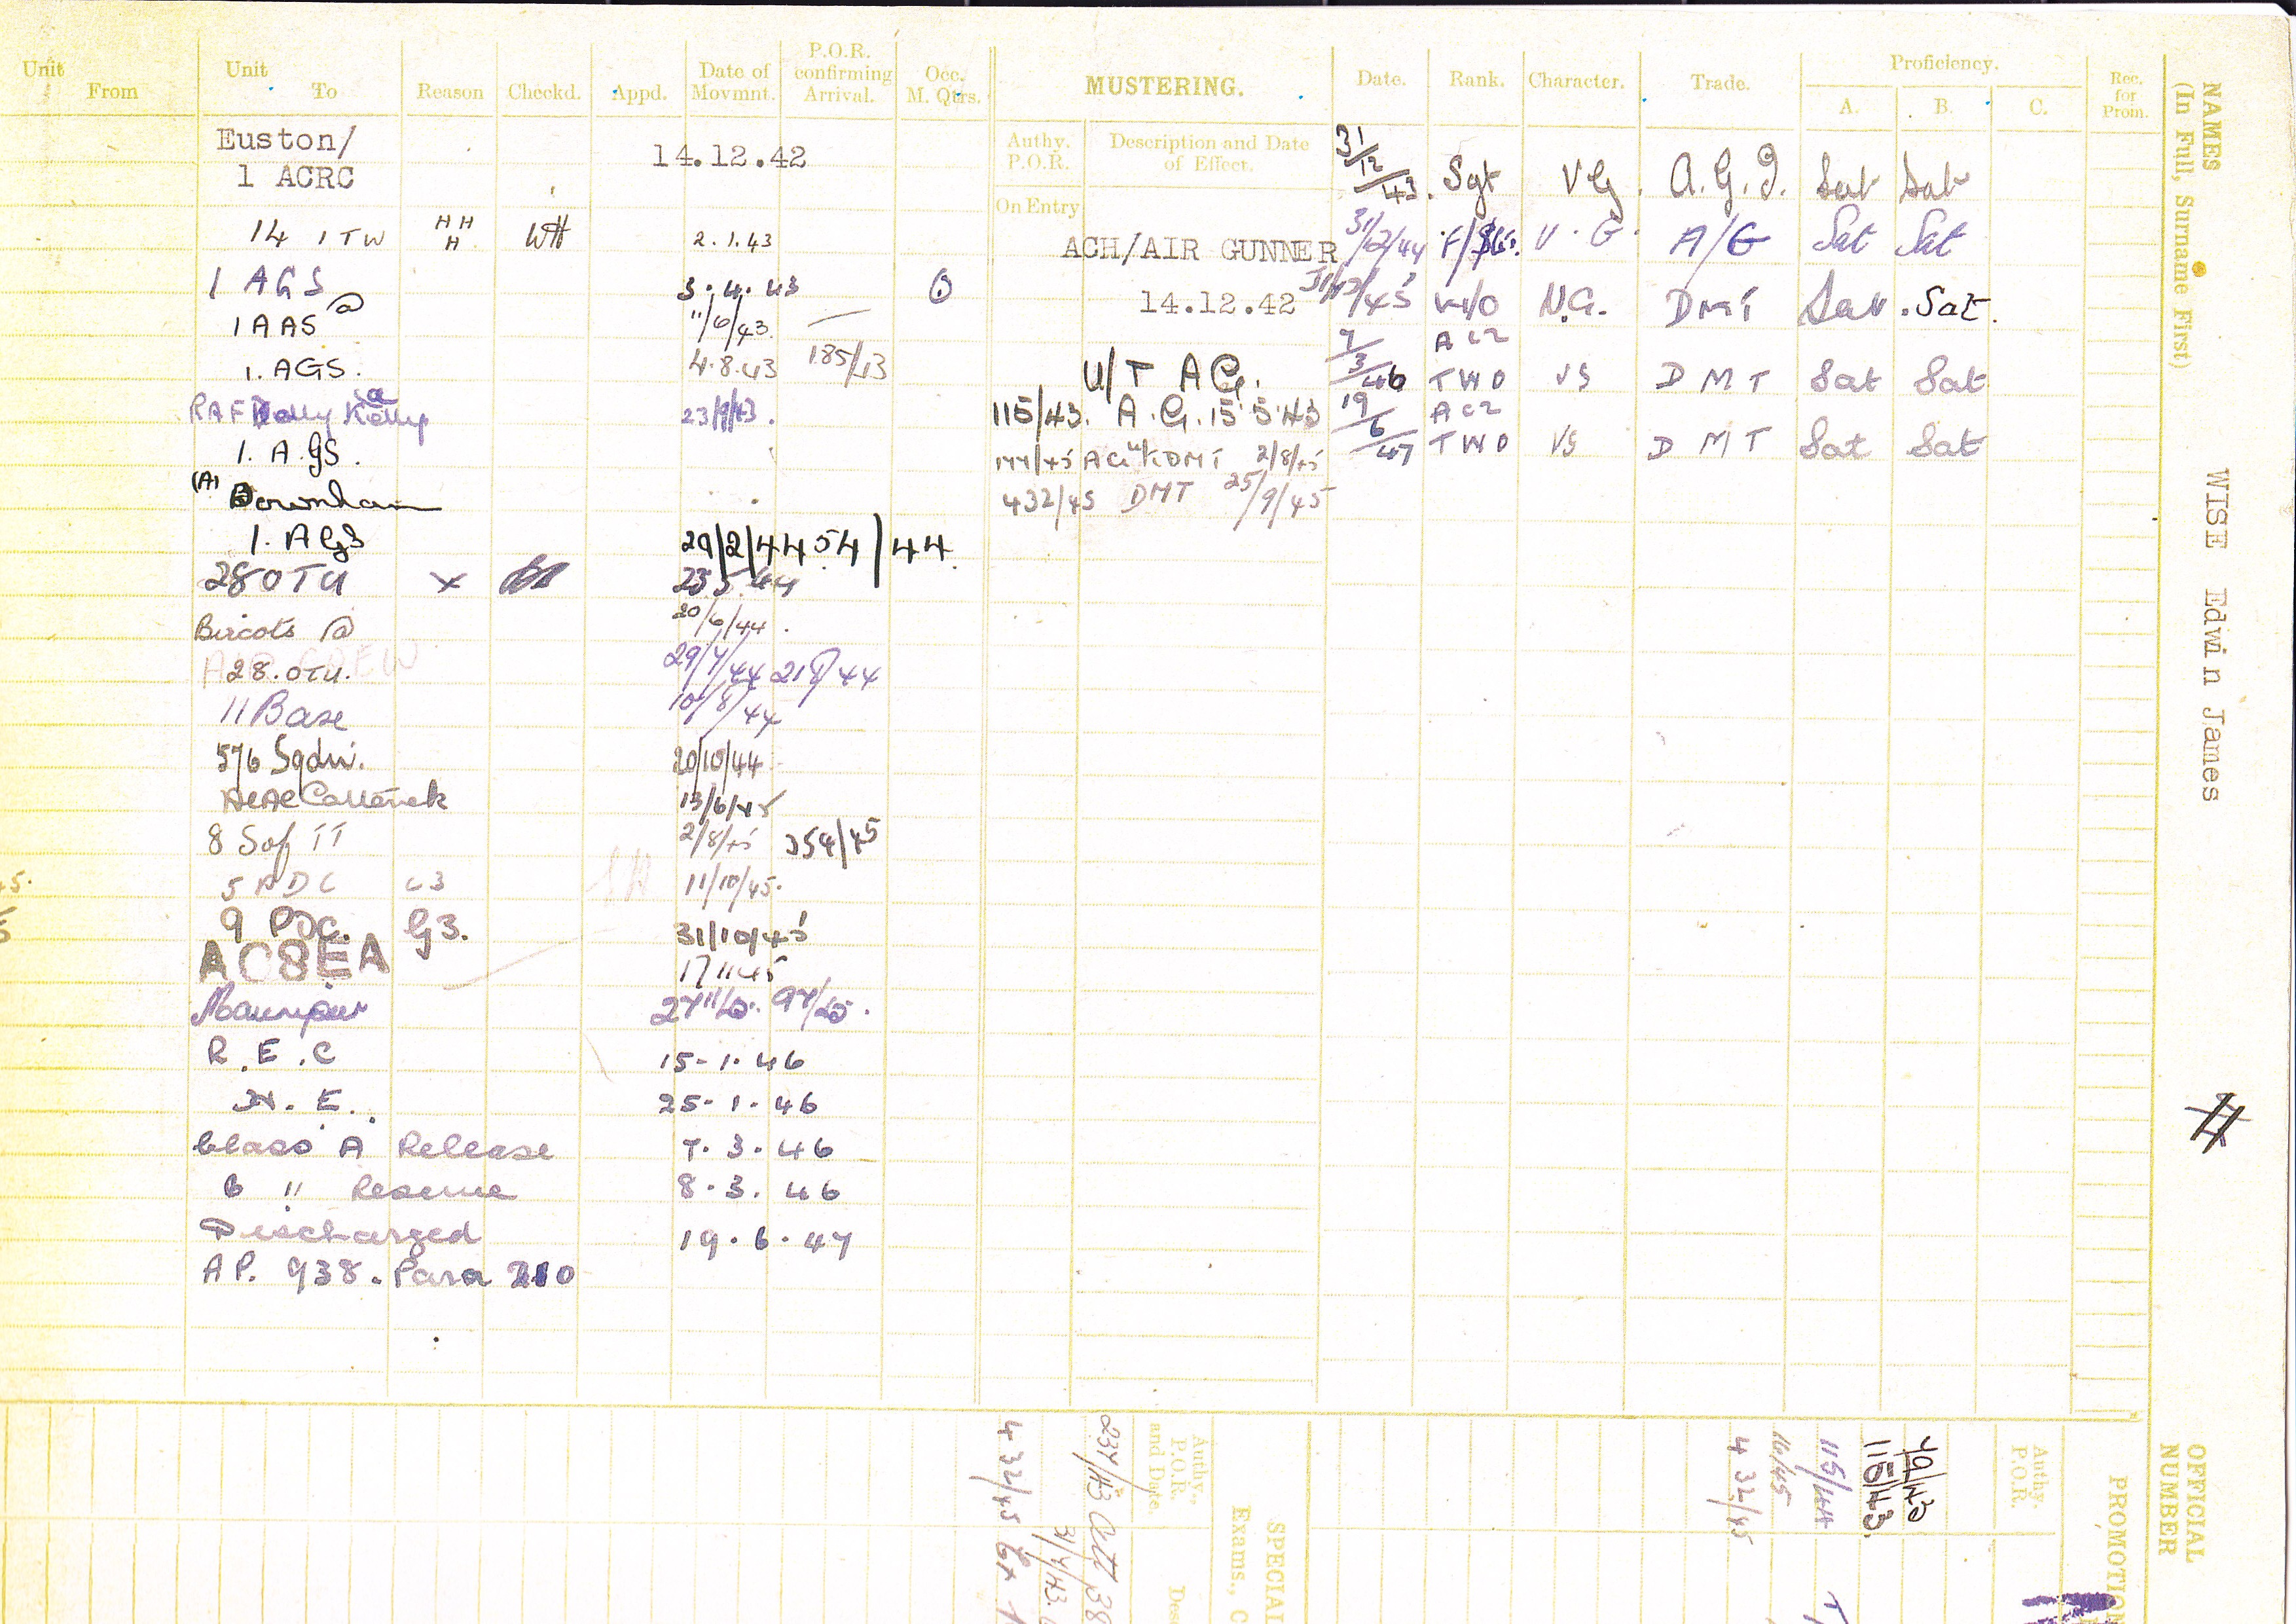 Unit From
Unit To
Reason
Checkd.
Appd.
Date of Movmnt.
P.O.R. confirming Arrival.
Occ. M. Qtrs.
Euston/
1 ACRC 14.12.42
14 ITW HH H WH 2.1.43
1 AGS 3.4.43
1 AAS @ 11/6/43
1. AGS. 4.8.43 185/43
RAF 23/9/43.
1. A.GS.
(A) Downham
1. AGS 29/2/44 54/44
28 OTU x 23 5 44
Bircots @ 20/6/44.
28. OTU. 29/7/44 218/44
11 Base 10/8/44
576 Sqdn. 20/10/44
ACAC Catterick 13/6/45
8 SofTT 2/8/45 354/45
5 PDC C3 11/10/45.
9 PDC. G3. 31/10/45
ACSEA 17 11 45
Mauripur 27 11/45. 97/45.
R.E.C 15-1-46
H.E. 25-1-46
Class A Release 7.3.46
G " Reserve 8.3.46
Discharged 19.6.47
AP. 938. Para 210
45.
MUSTERING.
Authy. P.O.R.
Description and Date of Effect.
On Entry
ACH/AIR GUNNER
14.12.42
U/T AG.
115/43. A.G. 15 5 43
AG U/T DMT 2/8/45
432/45 DMT 25/9/45
Date. Rank. Character. Trade. Proficiency. A. B. C. Rec. for Prom.
31/12/43. Sgt VG. A.G. Sat Sat
31/12/44 F/Sgt. V.G. A/G Sat Sat
31/12/45 W/O V.G. DMT Sat. Sat.
7/3/46 AC2 TWO VG DMT Sat Sat
19/6/47 AC2 TWO VG DMT Sat Sat
NAMES
(In Full, Surname First)
WISE Edwin James
OFFICIAL NUMBER
PROMOTION
Authy. P.O.R.
49/43
115/43.
115/44
16/45
432/45
SPECIAL
Exams., C
Authy., P.O.R. and Date.
Desc
237/43 Att 38
31/7/43.
432/45 Ex